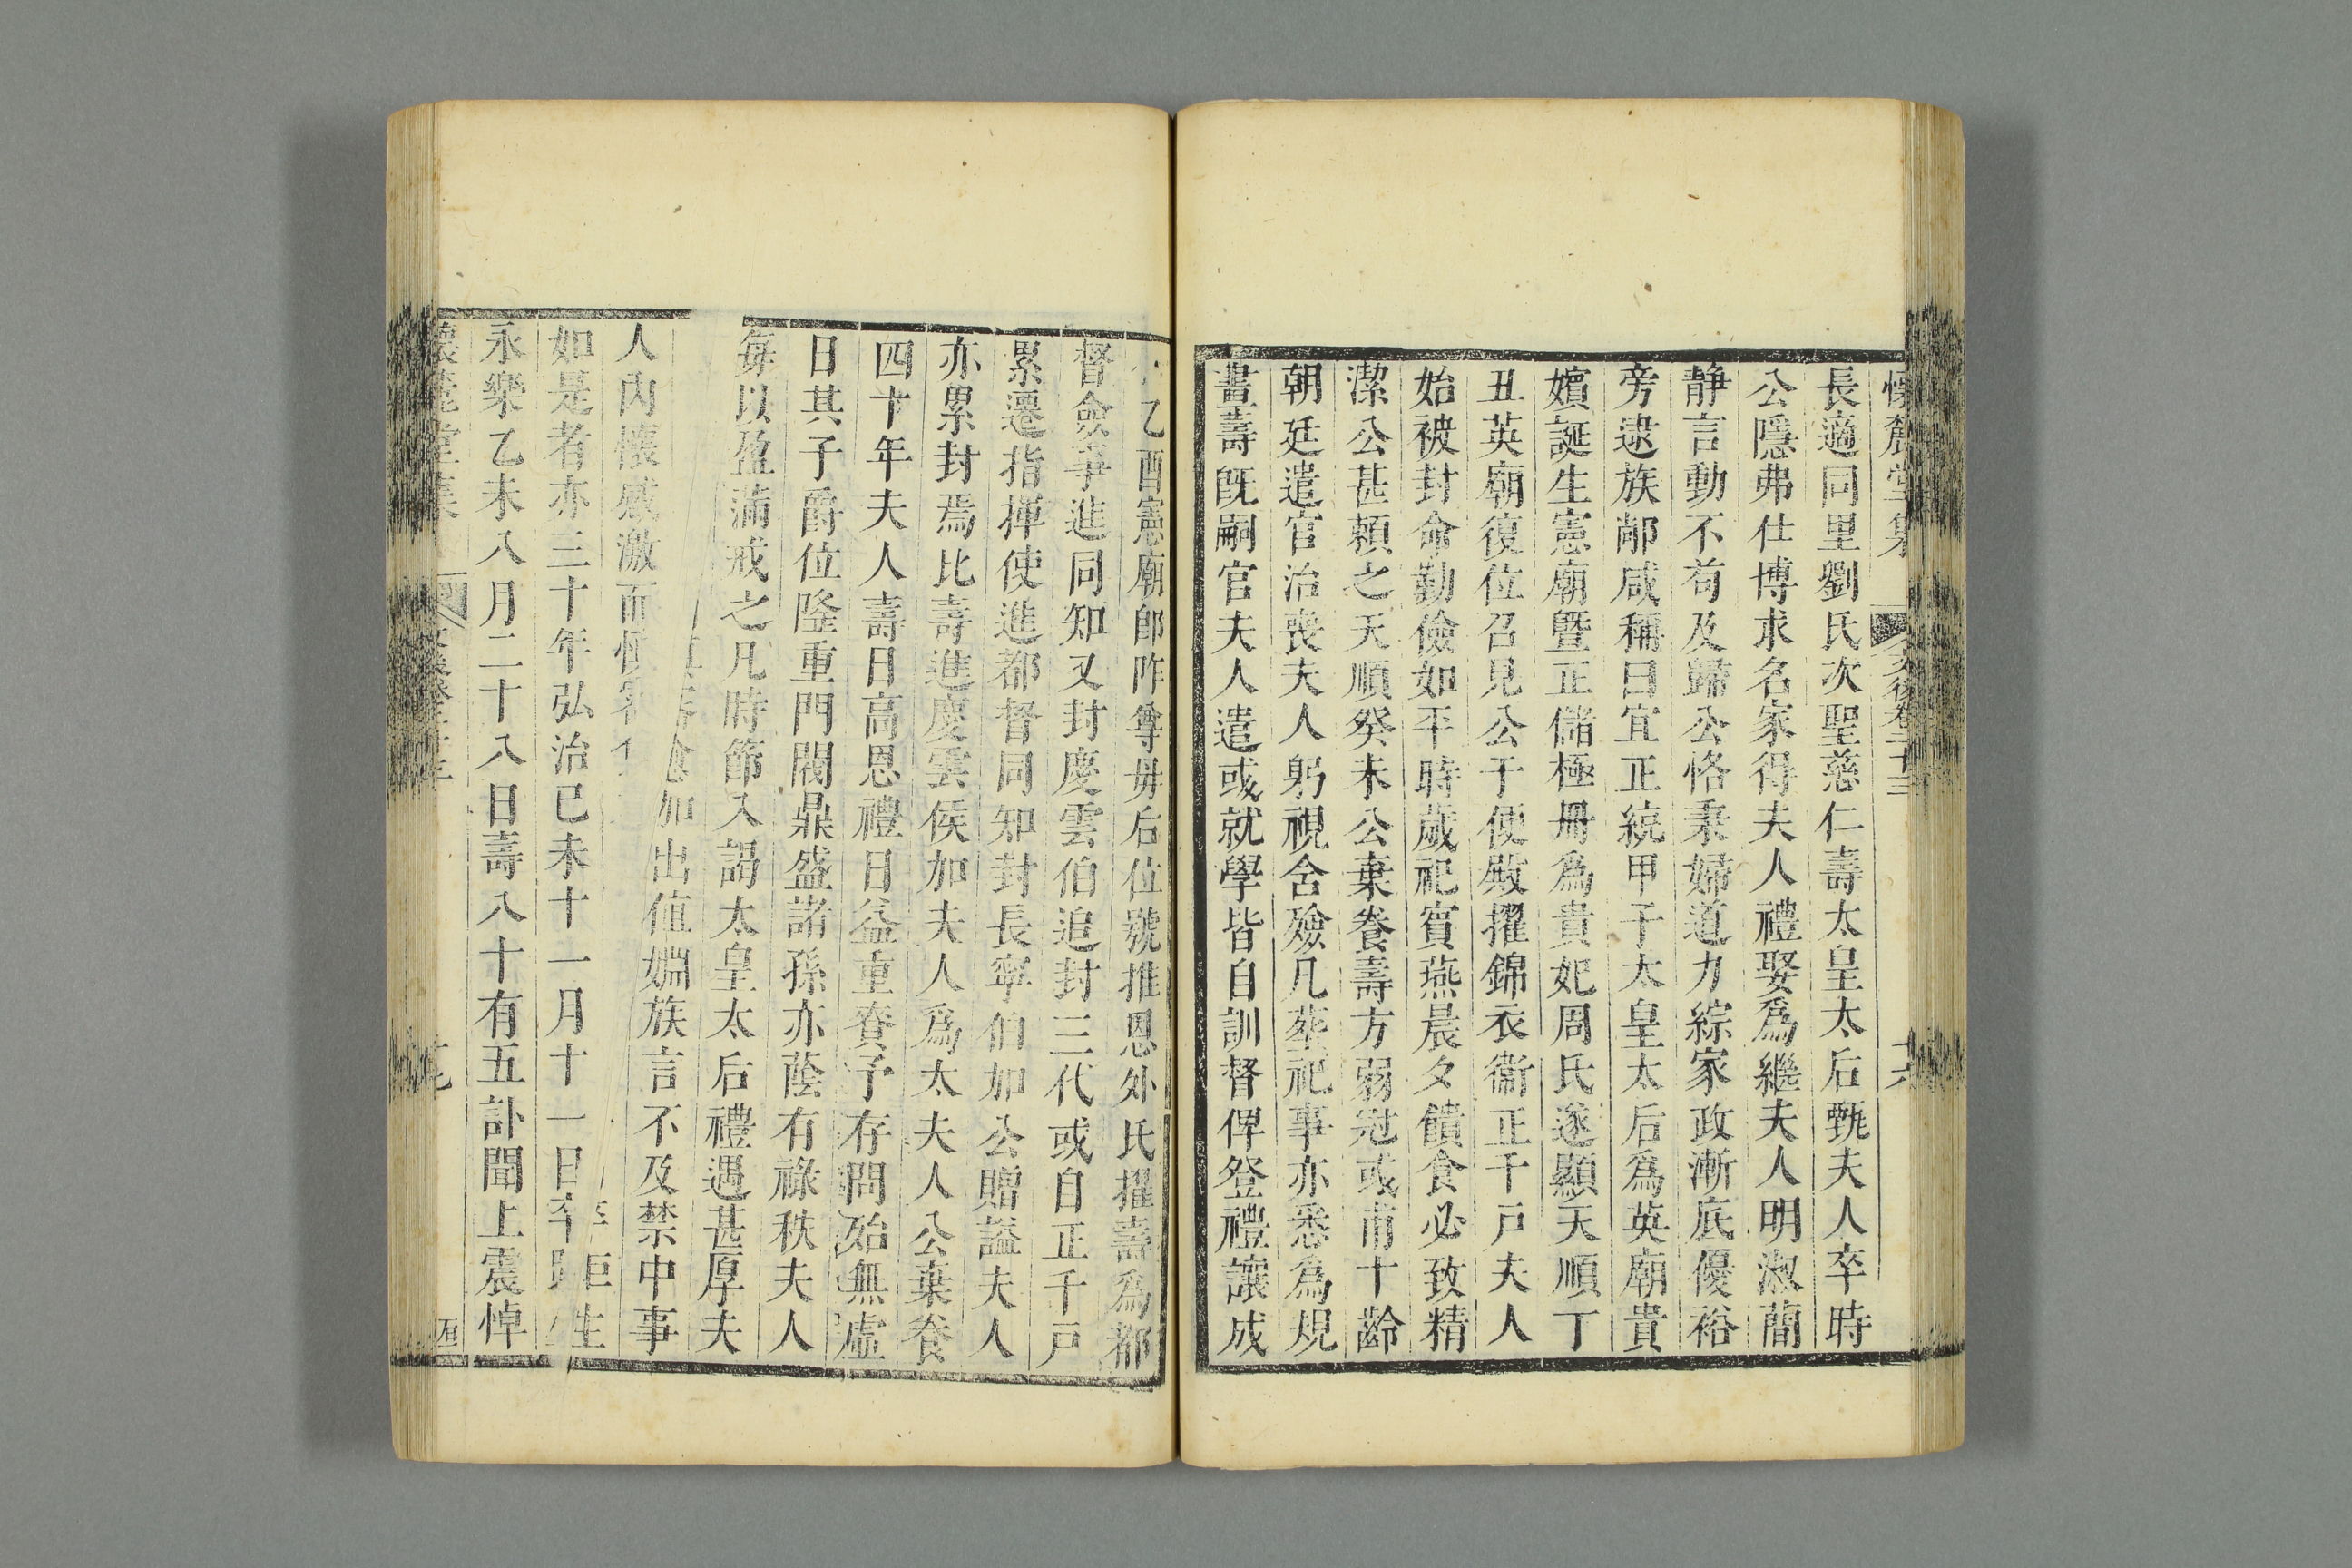 懷麓堂集 文後卷二十三 十六
長適同里劉氏次聖慈仁壽太皇太后甄夫人卒時
公隱弗仕博求名家得夫人禮娶爲繼夫人明淑簡
靜言動不苟及歸公恪秉婦道力綜家政漸底優裕
旁逮族鄰咸稱曰宜正統甲子太皇太后爲英廟貴
嬪誕生憲廟曁正儲極冊爲貴妃周氏遂顯天順丁
丑英廟復位召見公于便殿擢錦衣衞正千戸夫人
始被封命勤儉如平時歲祀賓燕晨夕饋食必致精
潔公甚頼之天順癸未公棄養壽方弱冠或甫十齡
朝廷遣官治喪夫人躬視含殮凡塟祀事亦悉爲規
畫壽既嗣官夫人遣或就學皆自訓督俾登禮讓成
乙酉憲廟卽阼尊毋后位號推恩外氏擢壽爲都
督僉事進同知又封慶雲伯追封三代或自正千戸
累遷指揮使進都督同知封長寧伯加公贈謚夫人
亦累封焉比壽進慶雲侯加夫人爲太夫人公棄養
四十年夫人壽日高恩禮日益重賚予存問殆無虛
日其子爵位隆重門閥鼎盛諸孫亦蔭有祿秩夫人
每以盈滿戒之凡時節入謁太皇太后禮遇甚厚夫
人內懷感激而愼 加出値婣族言不及禁中事
如是者亦三十年弘治己未十一月十一日卒距生
永樂乙未八月二十八日壽八十有五訃聞上震悼
懷麓堂集